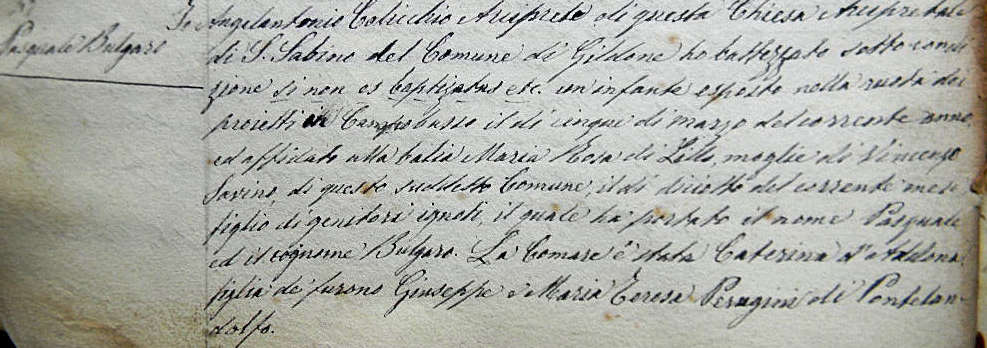 Pasquale Bulgaro
Io Angelantonio Calicchio Arciprete di questa Chiesa Arcipretale
di S. Sabino del Comune di Gildone ho battezzato sotto condi
zione si non es baptizatus etc. un'infante esposto nella ruota dei
proietti in Campobasso il di cinque di marzo del corrente anno,
ed affidato alla balia Maria Rosa di Lillo, moglie di Vincenzo
Savino, di questo suddetto Comune, il di diciotto del corrente mese,
figlio di genitori ignoti, il quale ha portato il nome Pasquale,
ed il cognome Bulgaro. La Comare è stata Caterina d'Addona
figlia de' furono Giuseppe e Maria Teresa Perugini di Pontelan-
dolfo.